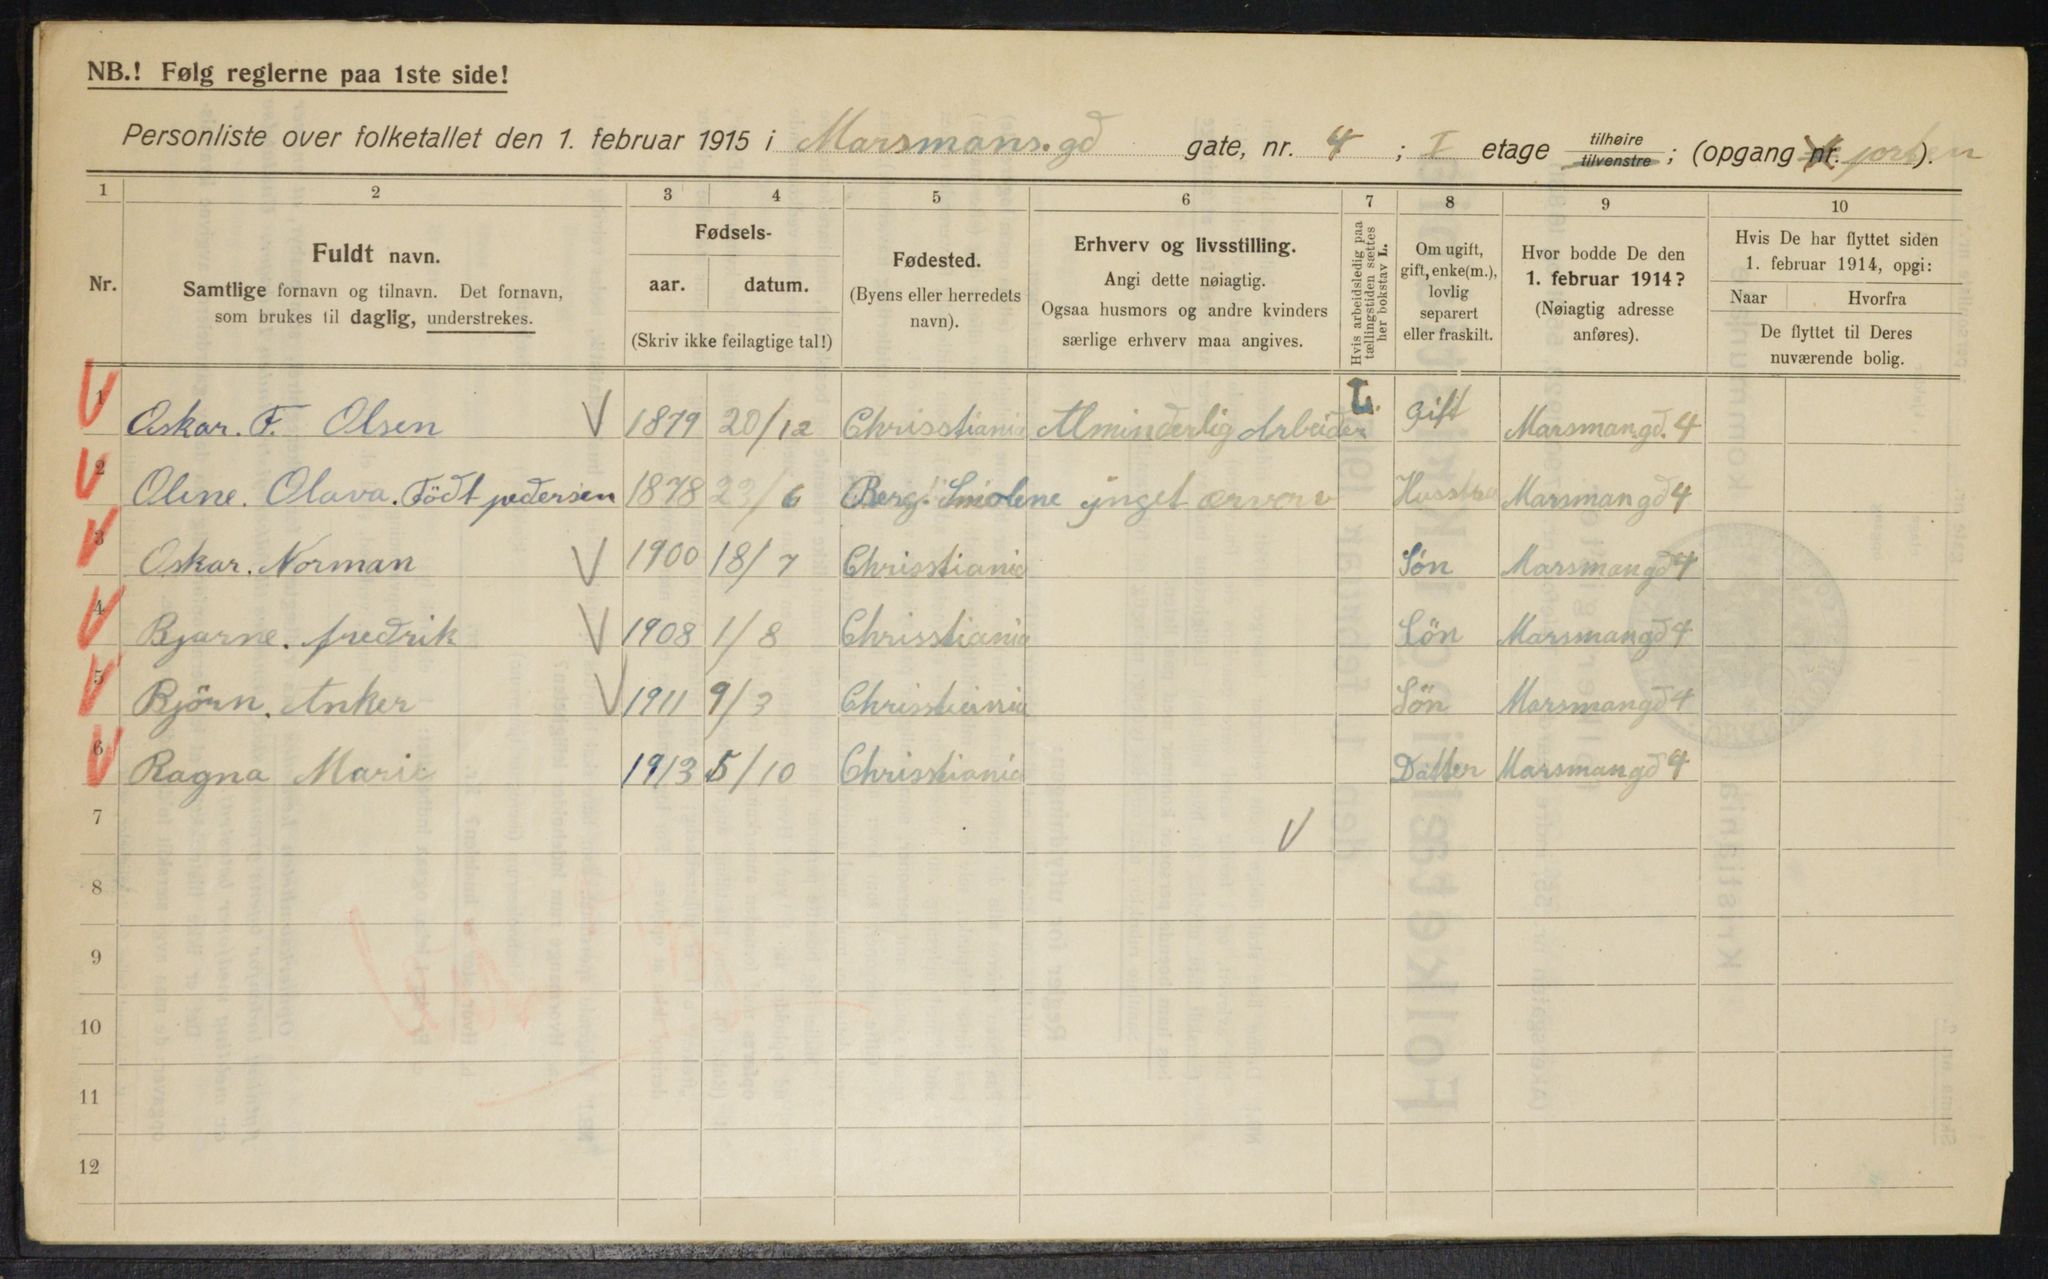 NB.! Følg reglerne paa 1ste side!
Personliste over folketallet den 1. februar 1915 i Marsmans.gd gate, nr. 4 ; I etage tilhøire tilvenstre ; (opgang nr. porten).
1 2 3 4 5 6 7 8 9 10
Nr.
Fuldt navn.
Samtlige fornavn og tilnavn. Det fornavn,
som brukes til daglig, understrekes.
Fødsels-
aar. datum.
(Skriv ikke feilagtige tal!)
Fødested.
(Byens eller herredets
navn).
Erhverv og livsstilling.
Angi dette nøiagtig.
Ogsaa husmors og andre kvinders
særlige erhverv maa angives.
Hvis arbeidsledig paa
tællingstiden sættes
her bokstav L.
Om ugift,
gift, enke(m.),
lovlig
separert
eller fraskilt.
Hvor bodde De den
1. februar 1914?
(Nøiagtig adresse
anføres).
Hvis De har flyttet siden
1. februar 1914, opgi:
Naar Hvorfra
De flyttet til Deres
nuværende bolig.
1 Oskar. F. Olsen 1879 20/12 Chrisstiania Alminderlig Arbeider L. Gift Marsman.gd.4
2 Oline. Olava. Födt pedersen 1878 23/6 Berg. Smolene ijnget ærværv Husstru Marsman gd 4
3 Oskar. Norman 1900 18/7 Chrisstiania Søn Marsman gd 4
4 Bjarne. fredrik 1908 1/8 Chrisstiania Sön Marsman gd 4
5 Björn. Anker 1911 9/3 Chrisstiania Sön Marsman gd 4
6 Ragna Marie 1913 5/10 Chrisstiania Datter Marsman gd 4
7
8
9
10
11
12